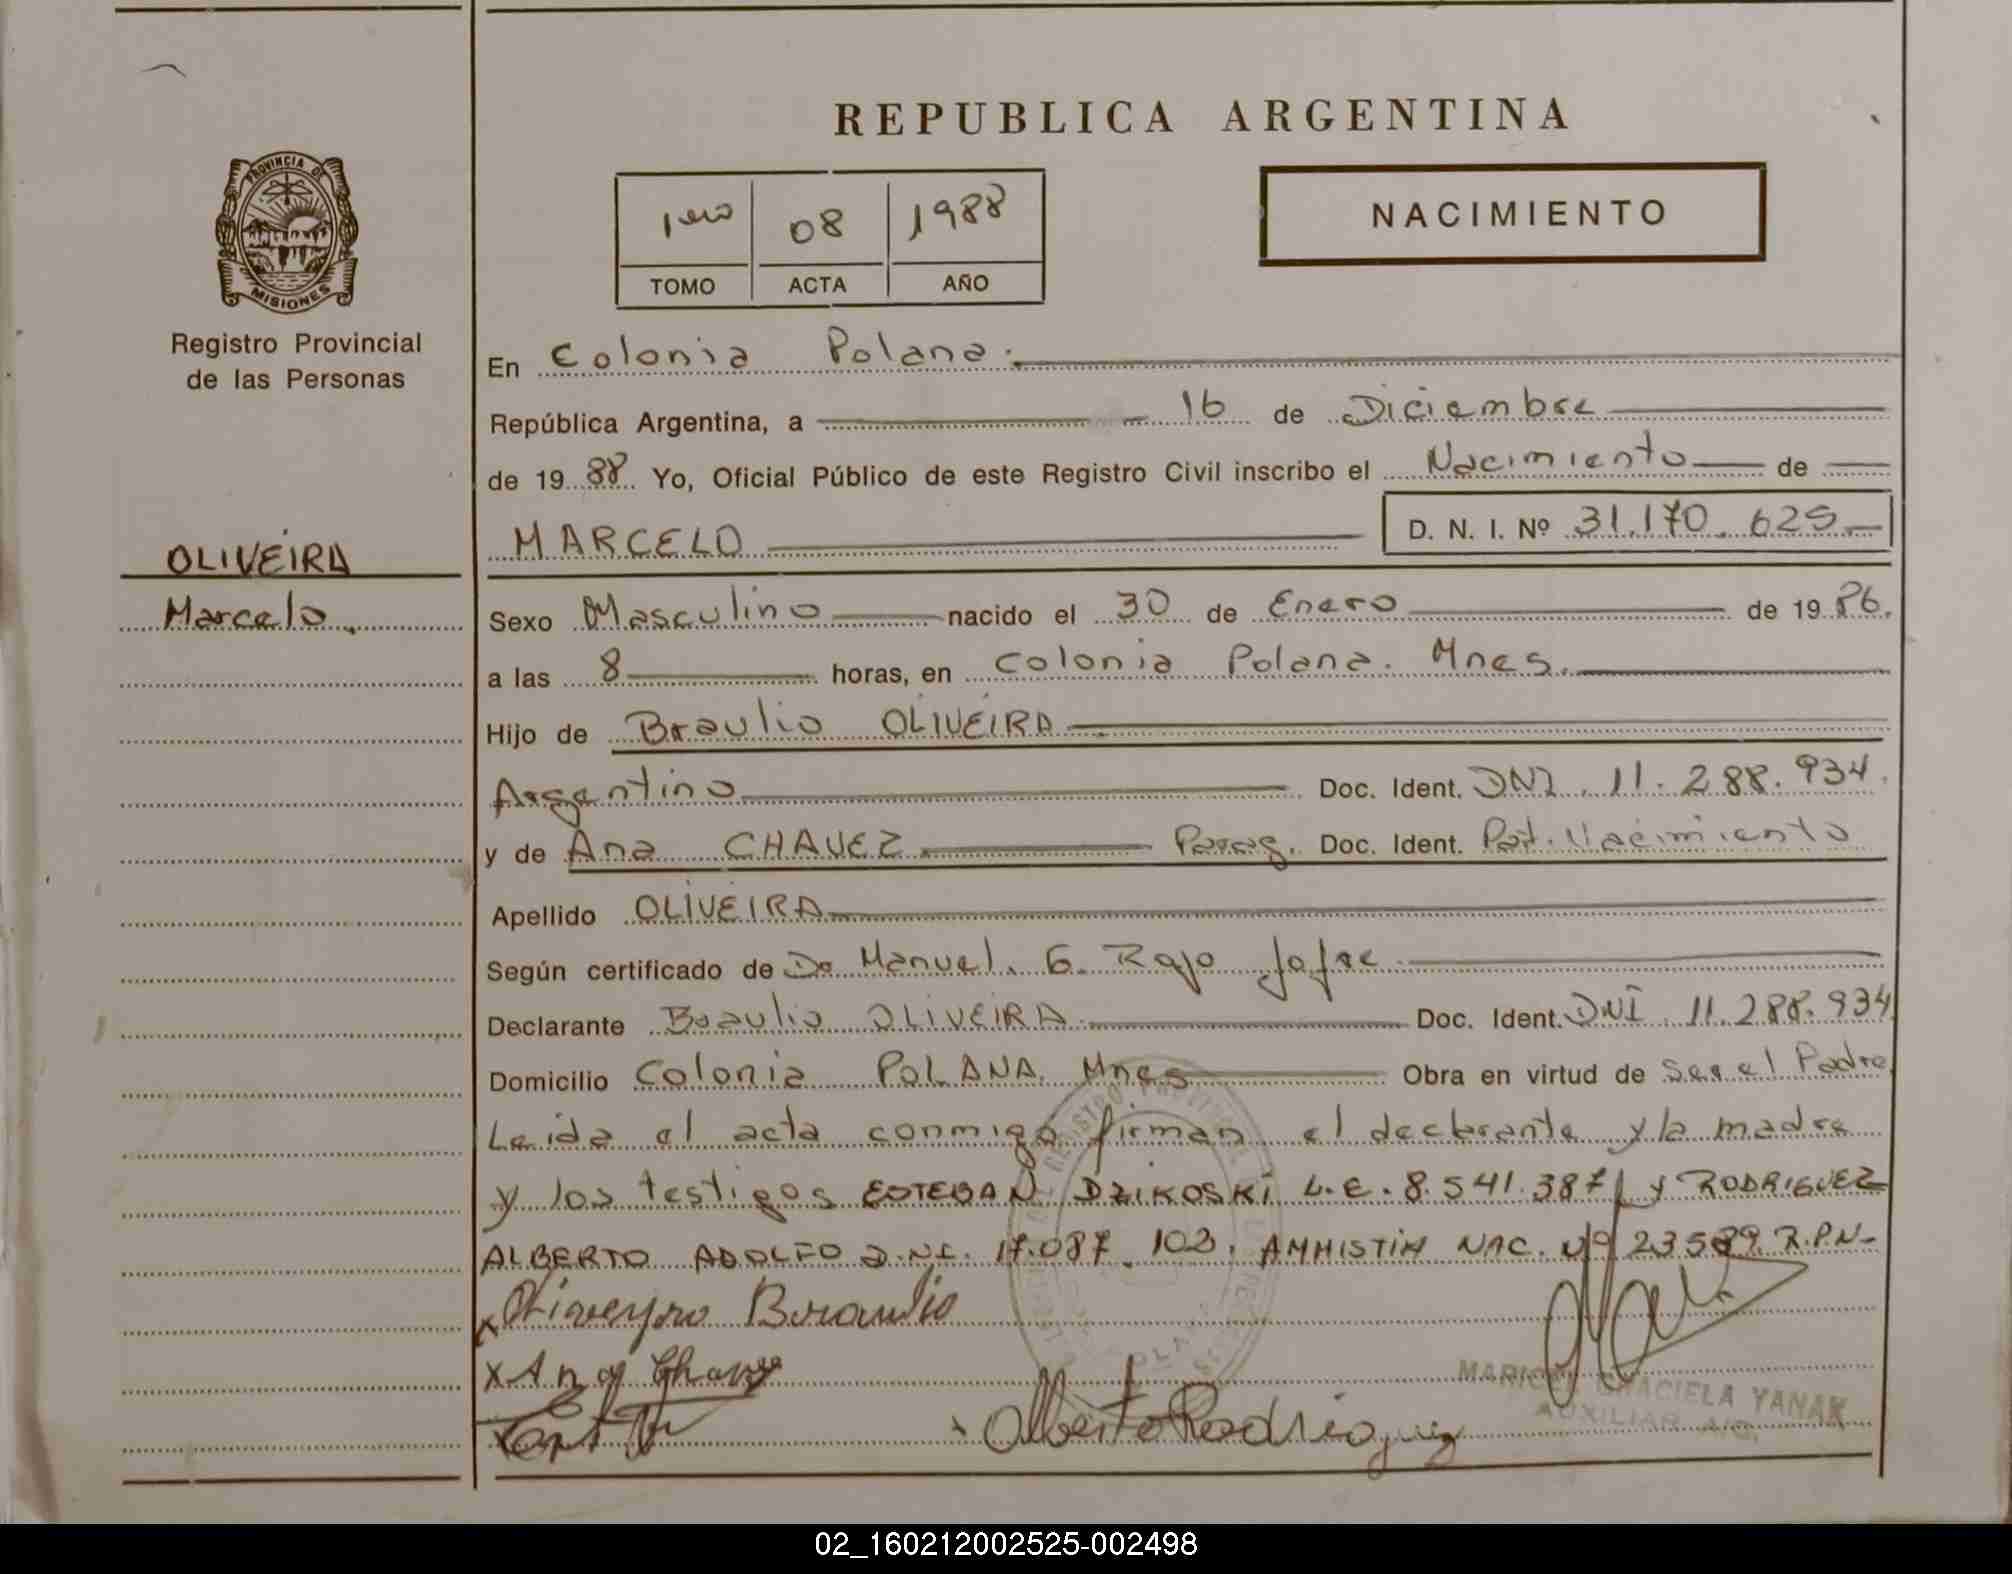 REPUBLICA ARGENTINA
PROVINCIA DE
MISIONES
Registro Provincial
de las Personas
1ero 08 1988
TOMO ACTA AÑO
NACIMIENTO
En Colonia Polana.
República Argentina, a 16 de Diciembre
de 1988 Yo, Oficial Público de este Registro Civil inscribo el Nacimiento de
MARCELO D. N. I. Nº 31.170.625
OLIVEIRA
Marcelo.
Sexo Masculino nacido el 30 de Enero de 1986.
a las 8 horas, en Colonia Polana. Mnes.
Hijo de Braulio OLIVEIRA
Argentino Doc. Ident. DNI. 11.288.934.
y de Ana CHAVEZ Parag. Doc. Ident. Nacimiento
Apellido OLIVEIRA
Según certificado de Dr Manuel. G. Rojo Jofre
Declarante Braulio OLIVEIRA Doc. Ident. DNI. 11.288.934
Domicilio Colonia POLANA. Mnes Obra en virtud de Ser el Padre
Leida el acta conmigo firman el declarante y la madre
y los testigos ESTEBAN DZIKOSKI L.E. 8.541.387 y RODRIGUEZ
ALBERTO ADOLFO D.N.I. 17.087.102. AMNISTIA NAC. Nº R.P.N-
x Oliveyro Braulio
x Ana Chavez
Alberto Rodriguez
GRACIELA YANAK
AUXILIAR
02_160212002525-002498